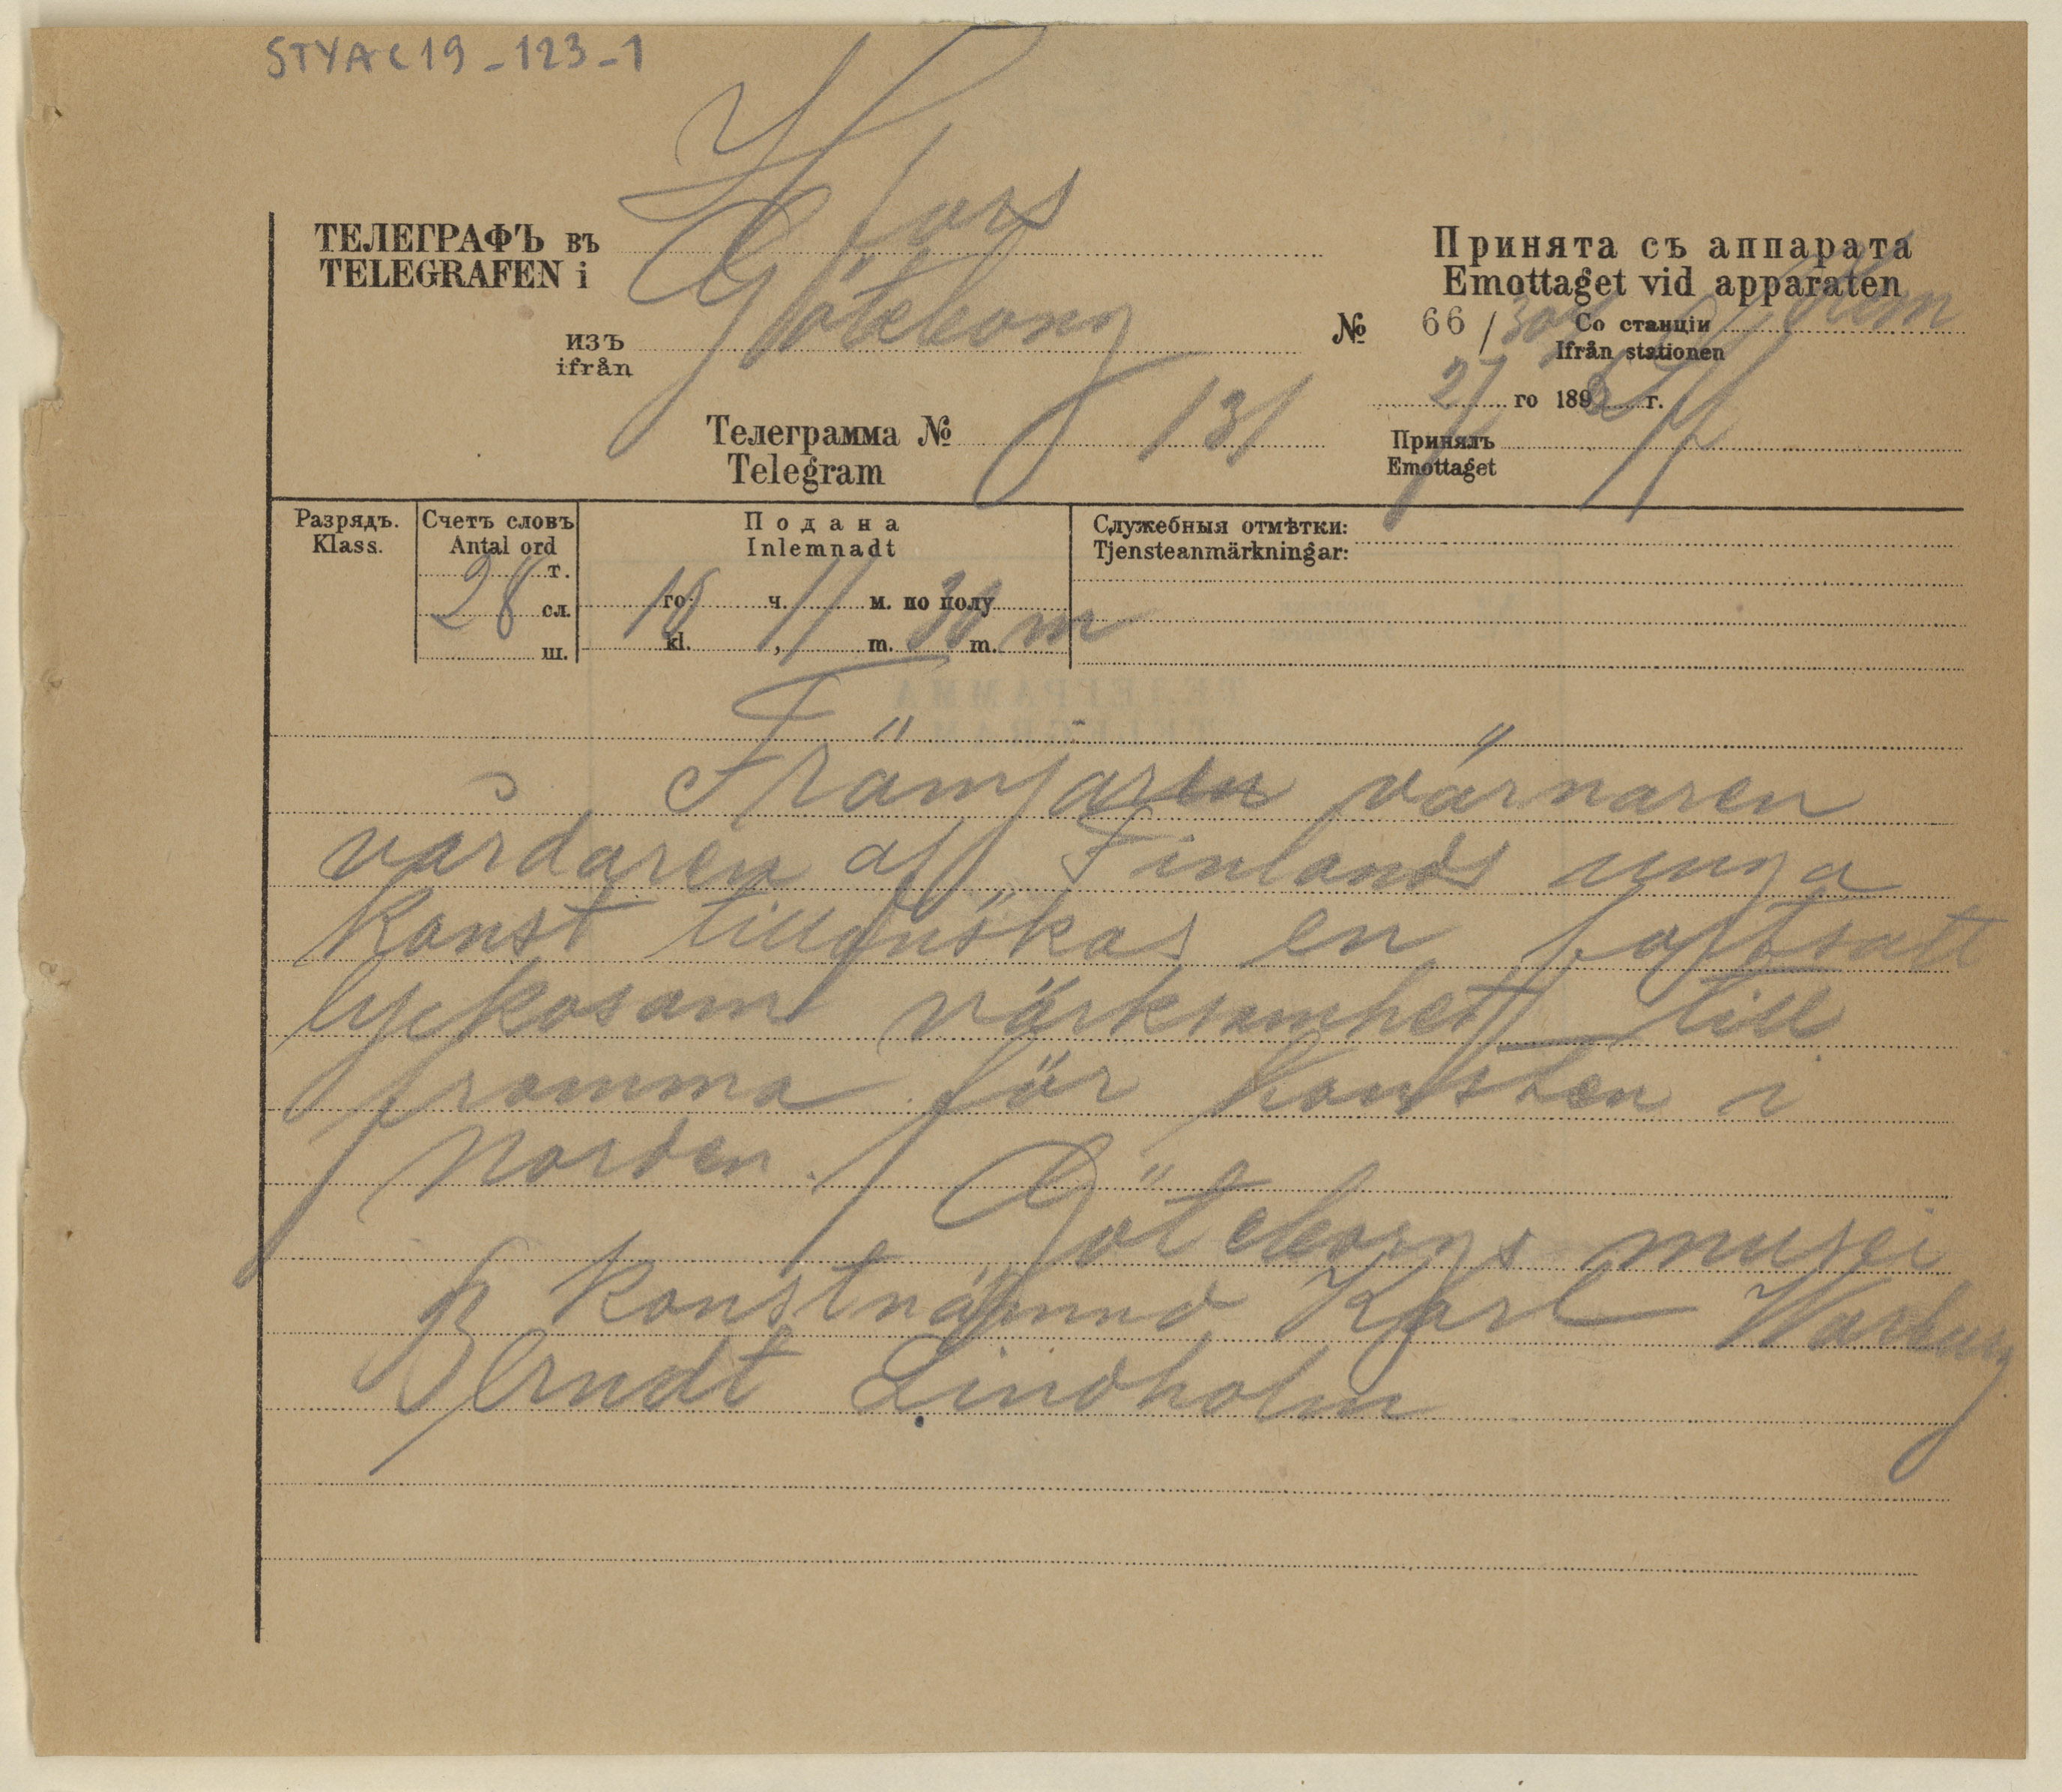 STYA C19-123-1
H fors
ТЕЛЕГРАФЪ въ
TELEGRAFEN i
Göteborg
изъ
ifrån
Телеграмма № 131
Telegram
Принята съ аппарата
Emottaget vid apparaten
№ 66 / Со станціи
Ifrån stationen
27 го 189 г.
Принялъ
Emottaget
Разрядъ.
Klass.
Счетъ словъ
Antal ord
т.
28 сл.
ш.
Подана
Inlemnadt
го ч. м. по полу
16 11 30 m
kl. , m. m.
Служебныя отмѣтки:
Tjensteanmärkningar:
Främjaren värnaren
vårdaren af Finlands unga
konst tillönskas en fortsatt
lyckosam värksamhet till
fromma för konsten i
norden. / Göteborgs musei
konstnämnd Karl Warburg
Berndt Lindholm